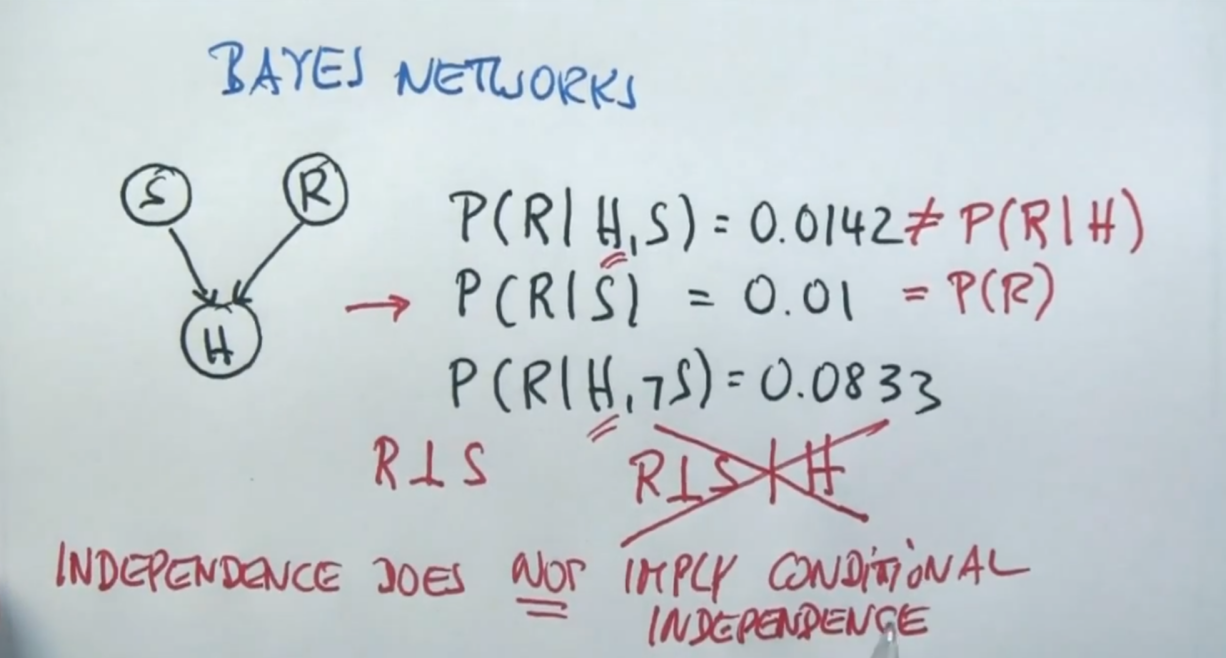 BAYES NETWORKS
S
R
H
P(R|H,S) = 0.0142 ≠ P(R|H)
→ P(R|S) = 0.01 = P(R)
P(R|H,¬S) = 0.0833
R⊥S
R⊥S|H
INDEPENDENCE DOES NOT IMPLY CONDITIONAL
INDEPENDENCE